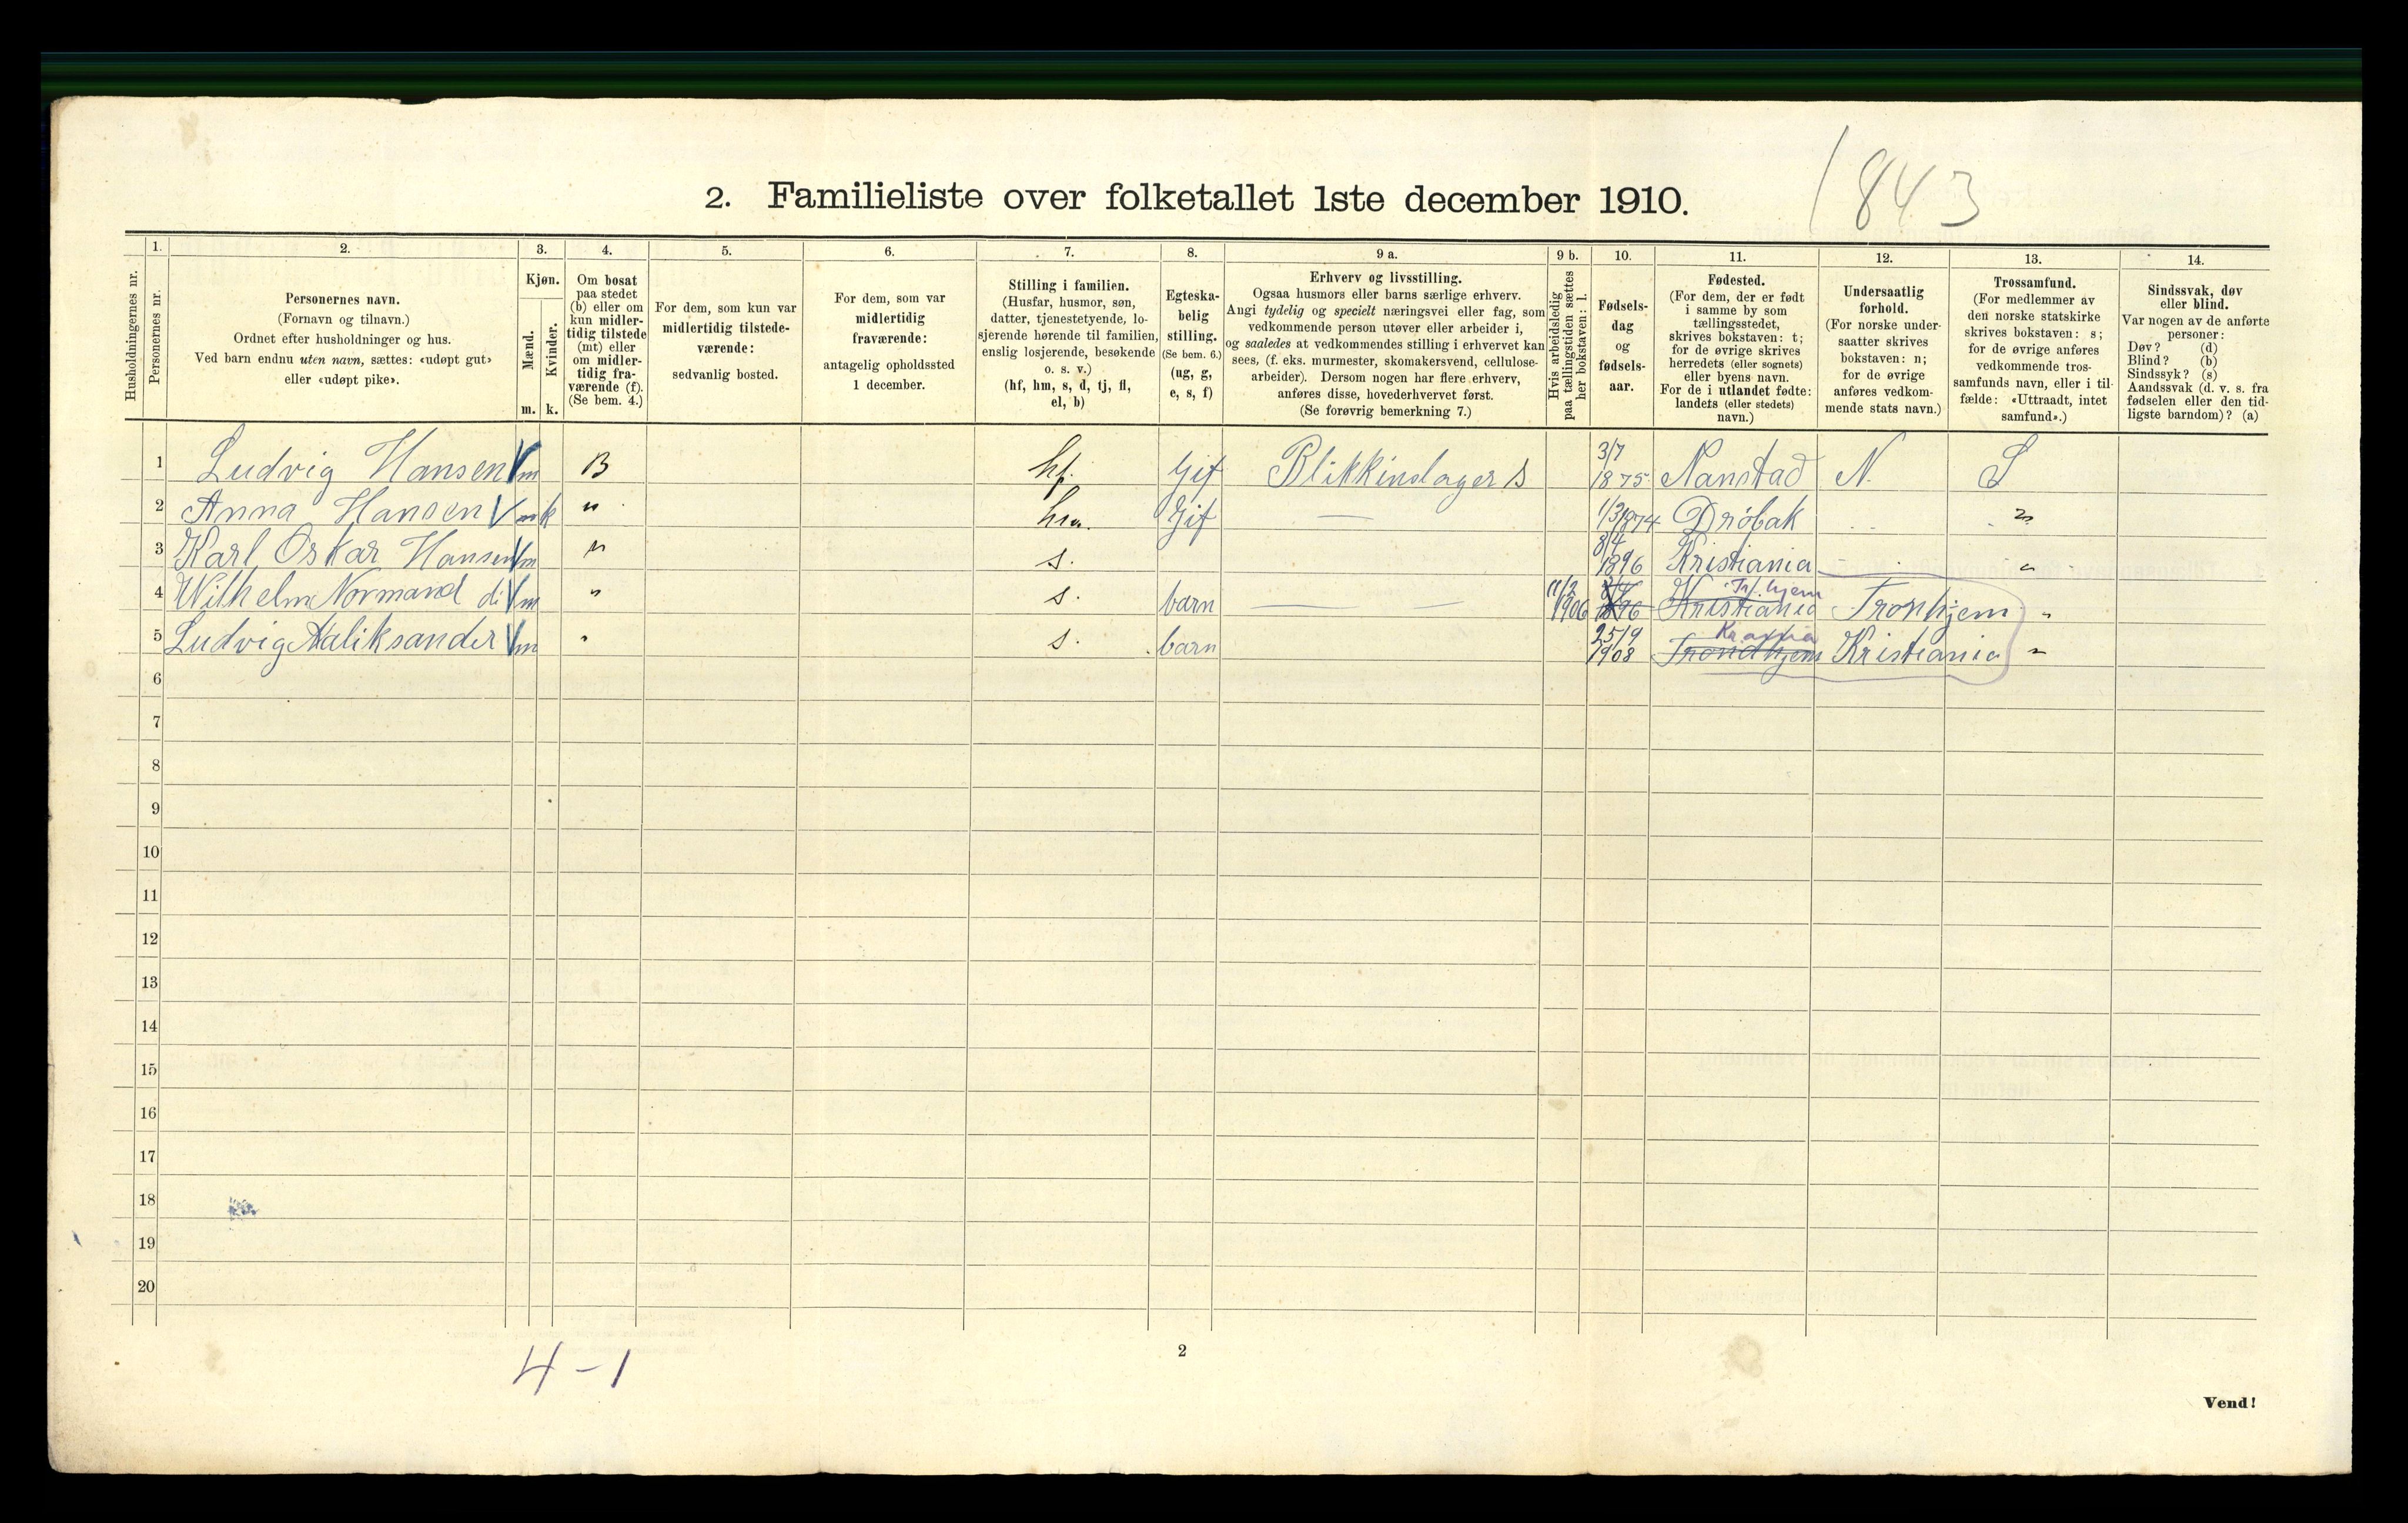 1843
2. Familieliste over folketallet 1ste december 1910.
Husholdningernes nr.
1.
Personernes nr.
2.
Personernes navn.
(Fornavn og tilnavn.)
Ordnet efter husholdninger og hus.
Ved barn endnu uten navn, sættes: «udøpt gut»
eller «udøpt pike».
3.
Kjøn.
Mænd.
Kvinder.
m. k.
4.
Om bosat
paa stedet
(b) eller om
kun midler-
tidig tilstede
(mt) eller
om midler-
tidig fra-
værende (f).
(Se bem. 4.)
5.
For dem, som kun var
midlertidig tilstede-
værende:
sedvanlig bosted.
6.
For dem, som var
midlertidig
fraværende:
antagelig opholdssted
1 december.
7.
Stilling i familien.
(Husfar, husmor, søn,
datter, tjenestetyende, lo-
sjerende hørende til familien,
enslig losjerende, besøkende
o. s. v.)
(hf, hm, s, d, tj, fl,
el, b)
8.
Egteska-
belig
stilling.
(Se bem. 6.)
(ug, g,
e, s, f)
9 a.
Erhverv og livsstilling.
Ogsaa husmors eller barns særlige erhverv.
Angi tydelig og specielt næringsvei eller fag, som
vedkommende person utøver eller arbeider i,
og saaledes at vedkommendes stilling i erhvervet kan
sees, (f. eks. murmester, skomakersvend, cellulose-
arbeider). Dersom nogen har flere erhverv,
anføres disse, hovederhvervet først.
(Se forøvrig bemerkning 7.)
9 b.
Hvis arbeidsledig
paa tællingstiden sættes
her bokstaven: l.
10.
Fødsels-
dag
og
fødsels-
aar.
11.
Fødested.
(For dem, der er født
i samme by som
tællingsstedet,
skrives bokstaven: t;
for de øvrige skrives
herredets (eller sognets)
eller byens navn.
For de i utlandet fødte:
landets (eller stedets)
navn.)
12.
Undersaatlig
forhold.
(For norske under-
saatter skrives
bokstaven: n;
for de øvrige
anføres vedkom-
mende stats navn.)
13.
Trossamfund.
(For medlemmer av
den norske statskirke
skrives bokstaven: s;
for de øvrige anføres
vedkommende tros-
samfunds navn, eller i til-
fælde: «Uttraadt, intet
samfund».)
14.
Sindssvak, døv
eller blind.
Var nogen av de anførte
personer:
Døv? (d)
Blind? (b)
Sindssyk? (s)
Aandssvak (d. v. s. fra
fødselen eller den tid-
ligste barndom)? (a)
1 Ludvig Hansen m B hf. Gif Blikkinslager s 3/7 1875 Nanstad N. S
2 Anna Hansen m k " hm. Gif — 1/3 1874 Drøbak "
3 Karl Oskar Hansen m " s. 8/4 1896 Kristiania "
4 Wilhelm Normand do m " s. barn — 11/2 1906 8/4 1896 Kristiania Tr.hjem Tronhjem "
5 Ludvig Aaliksander m " s. barn 25/9 1908 Trondhjem Kr.ania Kristiania "
6
7
8
9
10
11
12
13
14
15
16
17
18
19
20
4-1
2
Vend!